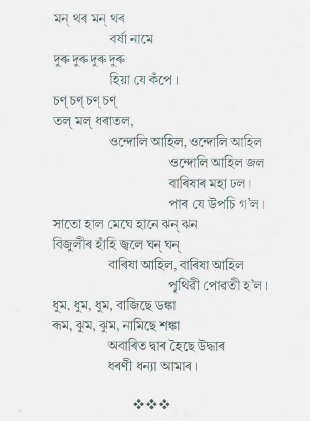 মন্ থৰ মন্ থৰ
বৰ্ষা নামে
দুৰু দুৰু দুৰু দুৰু
হিয়া যে কঁপে।
চণ্ চণ্ চণ্ চণ্
তল্ মল্ ধৰাতল,
ওন্দোলি আহিল, ওন্দোলি আহিল
ওন্দোলি আহিল জল
বাৰিষাৰ মহা ঢল।
পাৰ যে উপচি গ'ল।
সাতো হাল মেঘে হানে ঝন্ ঝন
বিজুলীৰ হাঁহি জ্বলে ঘন্ ঘন্
বাৰিষা আহিল, বাৰিষা আহিল
পৃথিৱী পোৱতী হ'ল।
ধুম, ধুম, ধুম, বাজিছে ডঙ্কা
ৰূম, ঝুম, ঝুম, নামিছে শঙ্কা
অবাৰিত দ্বাৰ হৈছে উদ্ধাৰ
ধৰণী ধন্যা আমাৰ।